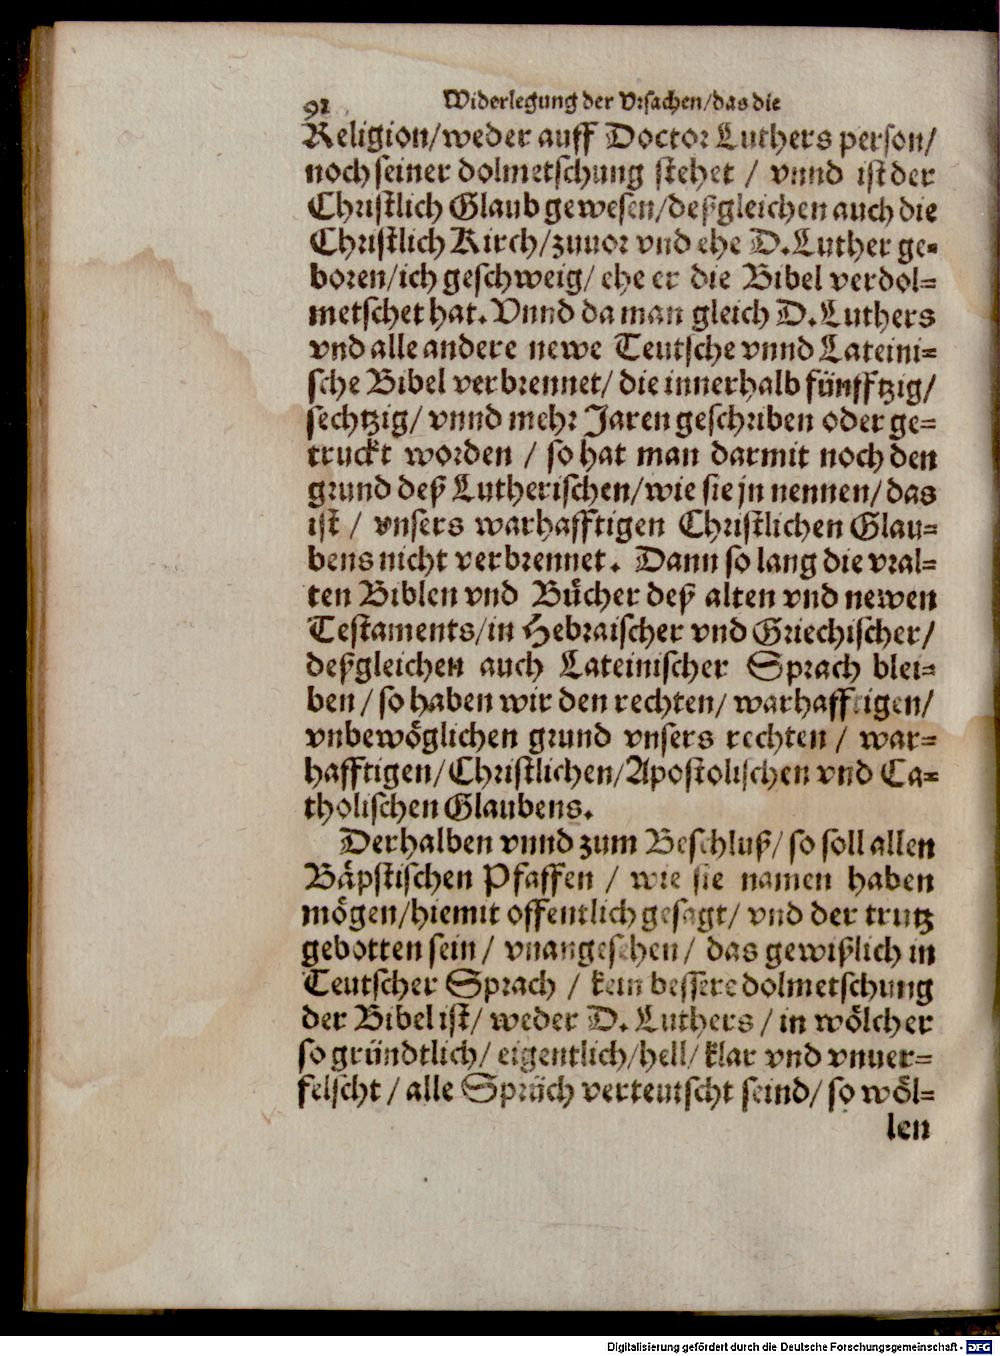 92 Widerlegung der Vrsachen/das die
Religion/weder auff Doctor Luthers person/
noch seiner dolmetschung stehet / vnnd ist der
Christlich Glaub gewesen/deßgleichen auch die
Christlich Kirch/zuuor vnd ehe D.Luther ge-
boren/ich geschweig/ ehe er die Bibel verdol-
metschet hat. Vnnd da man gleich D.Luthers
vnd alle andere newe Teutsche vnnd Lateini-
sche Bibel verbrennet/ die innerhalb fünfftzig/
sechtzig/ vnnd mehr Jaren geschriben oder ge-
truckt worden / so hat man darmit noch den
grund deß Lutherischen/wie sie jn nennen/das
ist / vnsers warhafftigen Christlichen Glau-
bens nicht verbrennet. Dann so lang die vral-
ten Biblen vnd Bücher deß alten vnd newen
Testaments/in Hebraischer vnd Griechischer/
deßgleichen auch Lateinischer Sprach blei-
ben / so haben wir den rechten/ warhafftigen/
vnbewöglichen grund vnsers rechten / war-
hafftigen/Christlichen/Apostolischen vnd Ca-
tholischen Glaubens.
Derhalben vnnd zum Beschluß/ so soll allen
Bäpstischen Pfaffen / wie sie namen haben
mögen/hiemit offentlich gesagt/ vnd der trutz
gebotten sein / vnangesehen / das gewißlich in
Teutscher Sprach / kein bessere dolmetschung
der Bibel ist/ weder D. Luthers / in wölcher
so gründtlich/ eigentlich/hell/ klar vnd vnuer-
felscht / alle Sprüch verteutscht seind/ so wöl-
len
Digitalisierung gefördert durch die Deutsche Forschungsgemeinschaft - DFG